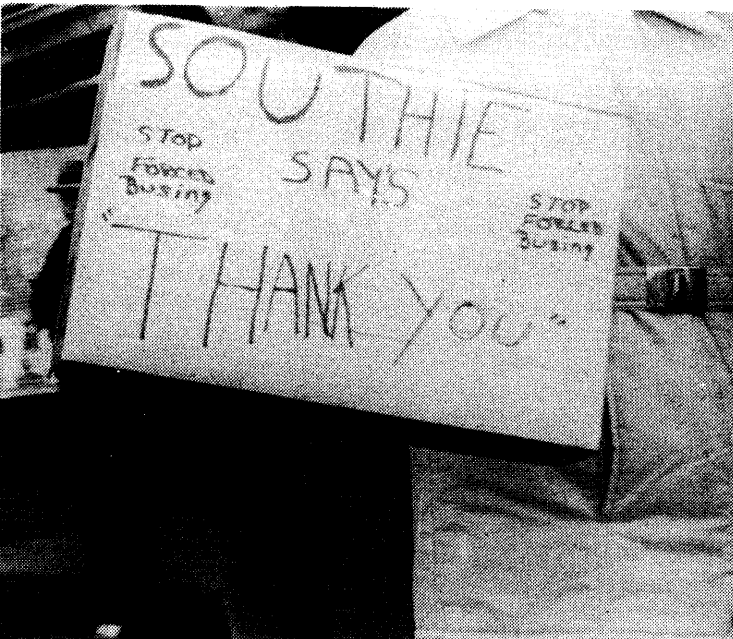 SOUTHIE
SAYS
STOP
FORCED
Busing
STOP
FORCED
Busing
"THANK YOU"